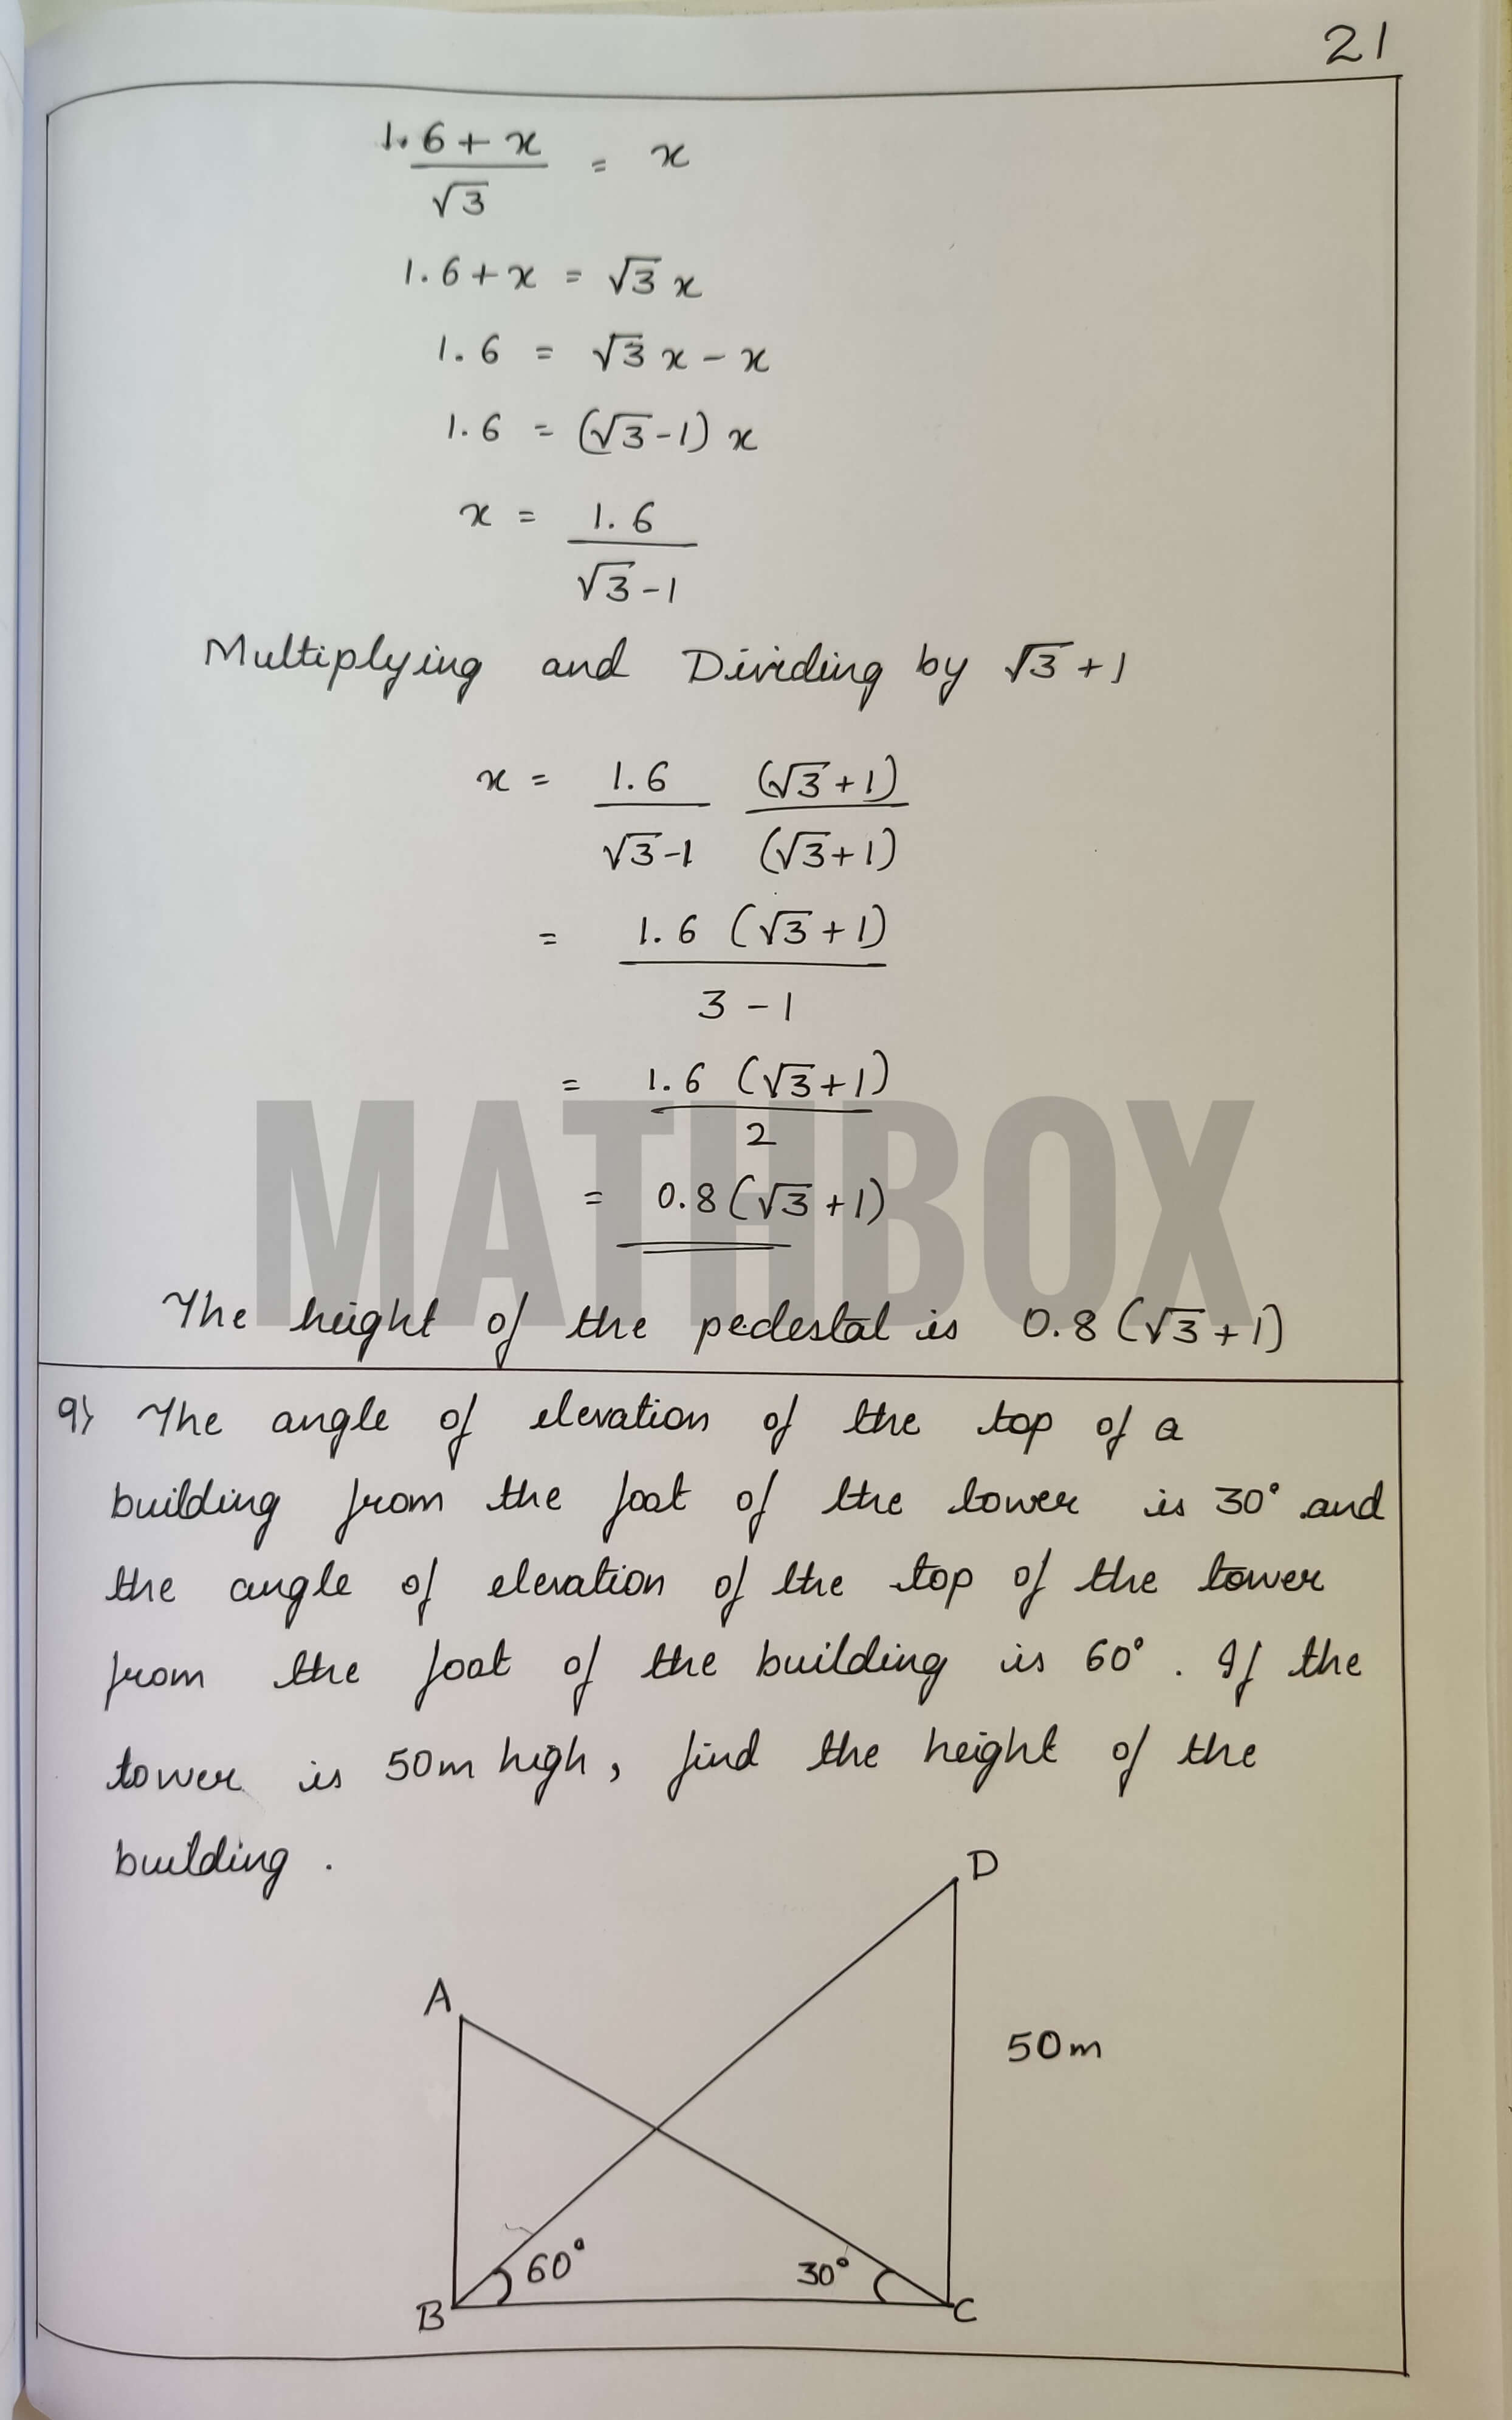 21
1.6 + x / √3 = x
1.6 + x = √3 x
1.6 = √3 x - x
1.6 = (√3 - 1) x
x = 1.6 / √3 - 1
Multiplying and Dividing by √3 + 1
x = 1.6 / √3 - 1 (√3 + 1) / (√3 + 1)
= 1.6 (√3 + 1) / 3 - 1
= 1.6 (√3 + 1) / 2
= 0.8 (√3 + 1)
MATHBOX
The height of the pedestal is 0.8 (√3 + 1)
9) The angle of elevation of the top of a
building from the foot of the tower is 30° and
the angle of elevation of the top of the tower
from the foot of the building is 60°. If the
tower is 50m high, find the height of the
building.
D
A
50m
60°
30°
B
C